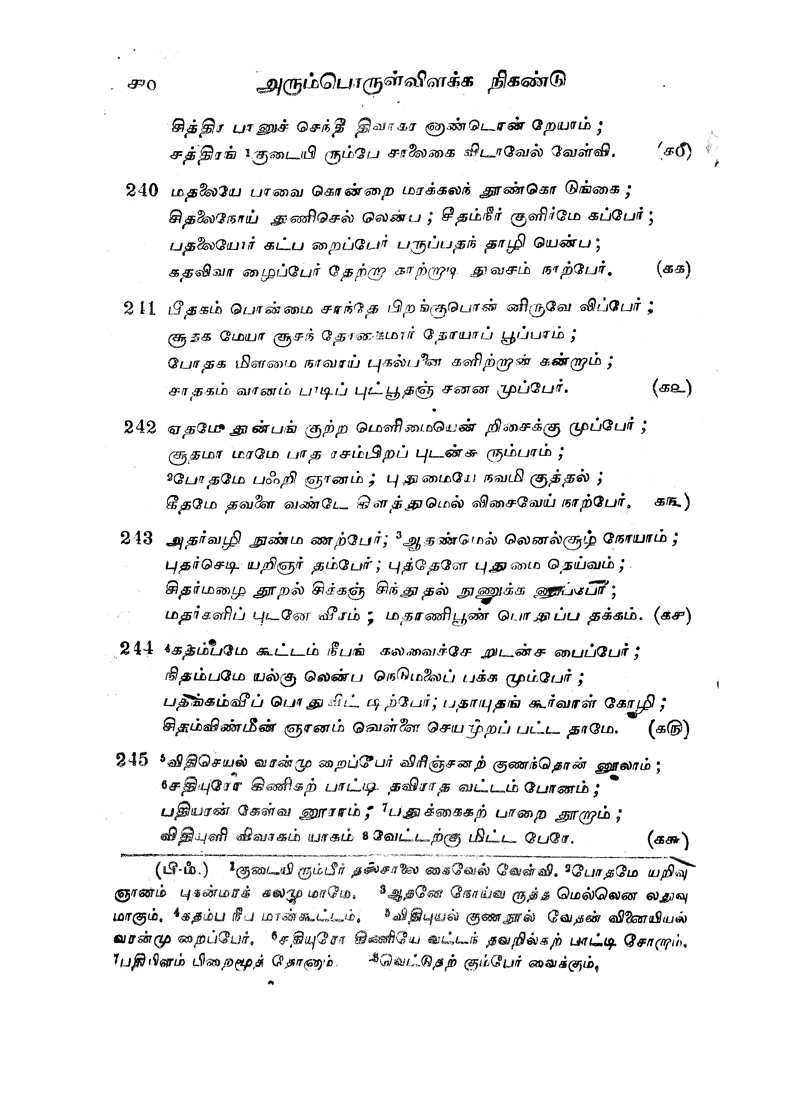 ௮௦ அரும்பொருள்விளக்க நிகண்டு
சித்திர பானுச் செந்தீ திவாகர னுண்டொன் றேயாம் ;
சத்திரங் 1குடையி ரும்பே சாலைகை விடாவேல் வேள்வி. (௧௦)
240 மதலையே பாவை கொன்றை மரக்கலந் தூண்கொ டுங்கை ;
சிதலைநோய் துணிசெல் லென்ப ; சீதம்நீர் குளிர்மே கப்பேர் ;
பதலையோர் கட்ப றைப்பேர் பருப்பதந் தாழி யென்ப ;
கதலிவா ழைப்பேர் தேற்றா காற்றாடி துவசம் நாற்பேர். (௧௧)
241 பீதகம் பொன்மை சாந்தே பிறங்குபொன் னிருவே லிப்பேர் ;
சூதக மேயா சூசந் தோகைமார் தோயாப் பூப்பாம் ;
போதக மிளமை நாவாய் புகல்பனை களிற்றுன் கன்றும் ;
சாதகம் வானம் பாடிப் புட்பூதஞ் சனன முப்பேர். (௧௨)
242 ஏதமே துன்பங் குற்ற மெளிமையென் றிசைக்கு முப்பேர் ;
சூதமா மாமே பாத ரசம்பிறப் புடன்சு ரும்பாம் ;
2போதமே பஃறி ஞானம் ; புதுமையே நவமி குத்தல் ;
கீதமே தவளை வண்டே கிளத்துமெல் லிசைவேய் நாற்பேர். ௧௩)
243 அதர்வழி நுண்ம ணற்பேர்; 3ஆதண்மெல் லெனல்சூழ் நோயாம் ;
புதர்செடி யறிஞர் தம்பேர் ; புத்தேளே புதுமை தெய்வம் ;
சிதர்மழை தூறல் சிக்கஞ் சிந்துதல் நுணுக்க ணாப்பேர் ;
மதர்களிப் புடனே வீரம் ; மதாணிபூண் பொதுப்ப தக்கம். (௧௪)
244 4கதம்பமே கூட்டம் நீபங் கலவைச்சே றுடன்ச பைப்பேர் ;
நிதம்பமே யல்கு லென்ப நெடுமலைப் பக்க மும்பேர் ;
பதங்கம்வீப் பொதுவிட் டிற்பேர்; பதாயுதங் கூர்வாள் கோழி ;
சிதம்விண்மீன் ஞானம் வெள்ளை செயற்றப் பட்ட தாமே. (௧௫)
245 5விதிசெயல் வான்மு றைப்பேர் விரிஞ்சனற் குணந்தொன் னூலாம் ;
6சதியுரோ கிணிகற் பாட்டி தவிராத வட்டம் போனம் ;
பதியரன் கேள்வ னூராம் ; 7பதுக்கைகற் பாறை தூறும் ;
விதியுளி விவாகம் யாகம் 8வேட்டற்கு மிட்ட பேரே. (௧௬)
(பி-ம்.) 1குடையி ரும்பீர் தஸ்சாலை கைவேல் வேள்வி. 2போதமே யறிவு
ஞானம் புகன்மரக் கலமு மாமே. 3ஆதனே நோய்வ ருத்த மெல்லென லதுவு
மாகும். 4கதம்ப நீப மான்கூட்டம். 5விதிபுயல் குணநூல் வேதன் வினையியல்
வான்மு றைப்பேர். 6சதியுரோ கிணியே வட்டந் தவறில்கற் பாட்டி சோரும்.
7பதிபிளம் பிறைமூத் தோனும். 8வெட்டுதற் கும்பேர் வைக்கும்.